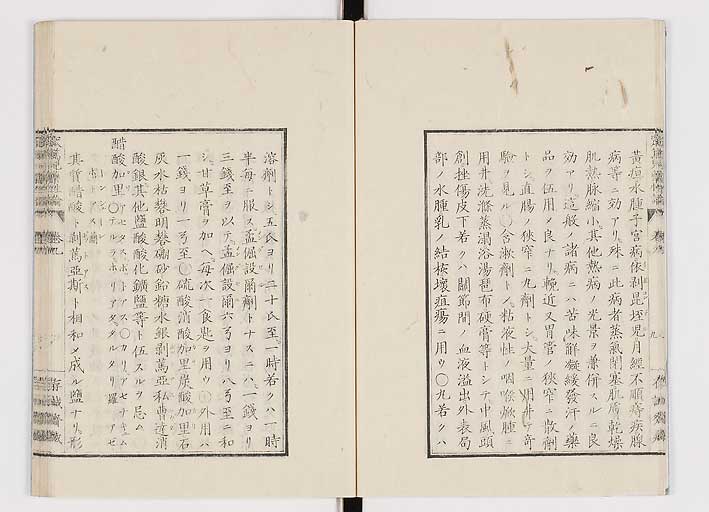 黃疸水腫子宮病依剥昆垤児月經不順痔疾腺
病等ニ効アリ殊ニ此病者蒸氣閉塞肌膚乾燥
肌熱脉縮小其他熱病ノ光景ヲ兼併スルニ良
効アリ這般ノ諸病ニハ苦味觧凝緩發汗ノ藥
品ヲ伍用メ良ナリ輓近又胃管ノ狹窄ニ散劑
トシ直腸ノ狹窄ニ丸劑トシ大量ニ用井テ奇
驗ヲ見ル○含漱劑トメ粘液性ノ咽喉焮腫ニ
用井洗滌蒸溻浴湯琶布硬膏等トシテ中風頭
創挫傷皮下若クハ關節間ノ血液溢出外表局
部ノ水腫乳ノ結核壞疽瘍ニ用ウ○丸若クハ
溶劑トシ五氏ヨリ二十氏至一時若クハ一時
半毎ニ服ス孟倔設爾劑トナスニハ一錢ヨリ
三錢至ヲ以テ孟倔設爾六弓ヨリ八弓至ニ和
シ甘草膏ヲ加ヘ毎次一食匙ヲ用ウ○外用ハ
一錢ヨリ一弓至○硫酸消酸加里炭酸加里石
灰水枯礬明礬硇砂鉛糖水銀剥篤亞私曹達消
酸銀其他鹽酸酸化鑛鹽等ト伍スルヲ忌ム
醋酸加里○アセタスポトアス○カリアセチキュム
テルラホリアタタルタリ羅○アゼ
其質醋酸ト剥篤亞斯ト相和メ成ル鹽ナリ形
卷九